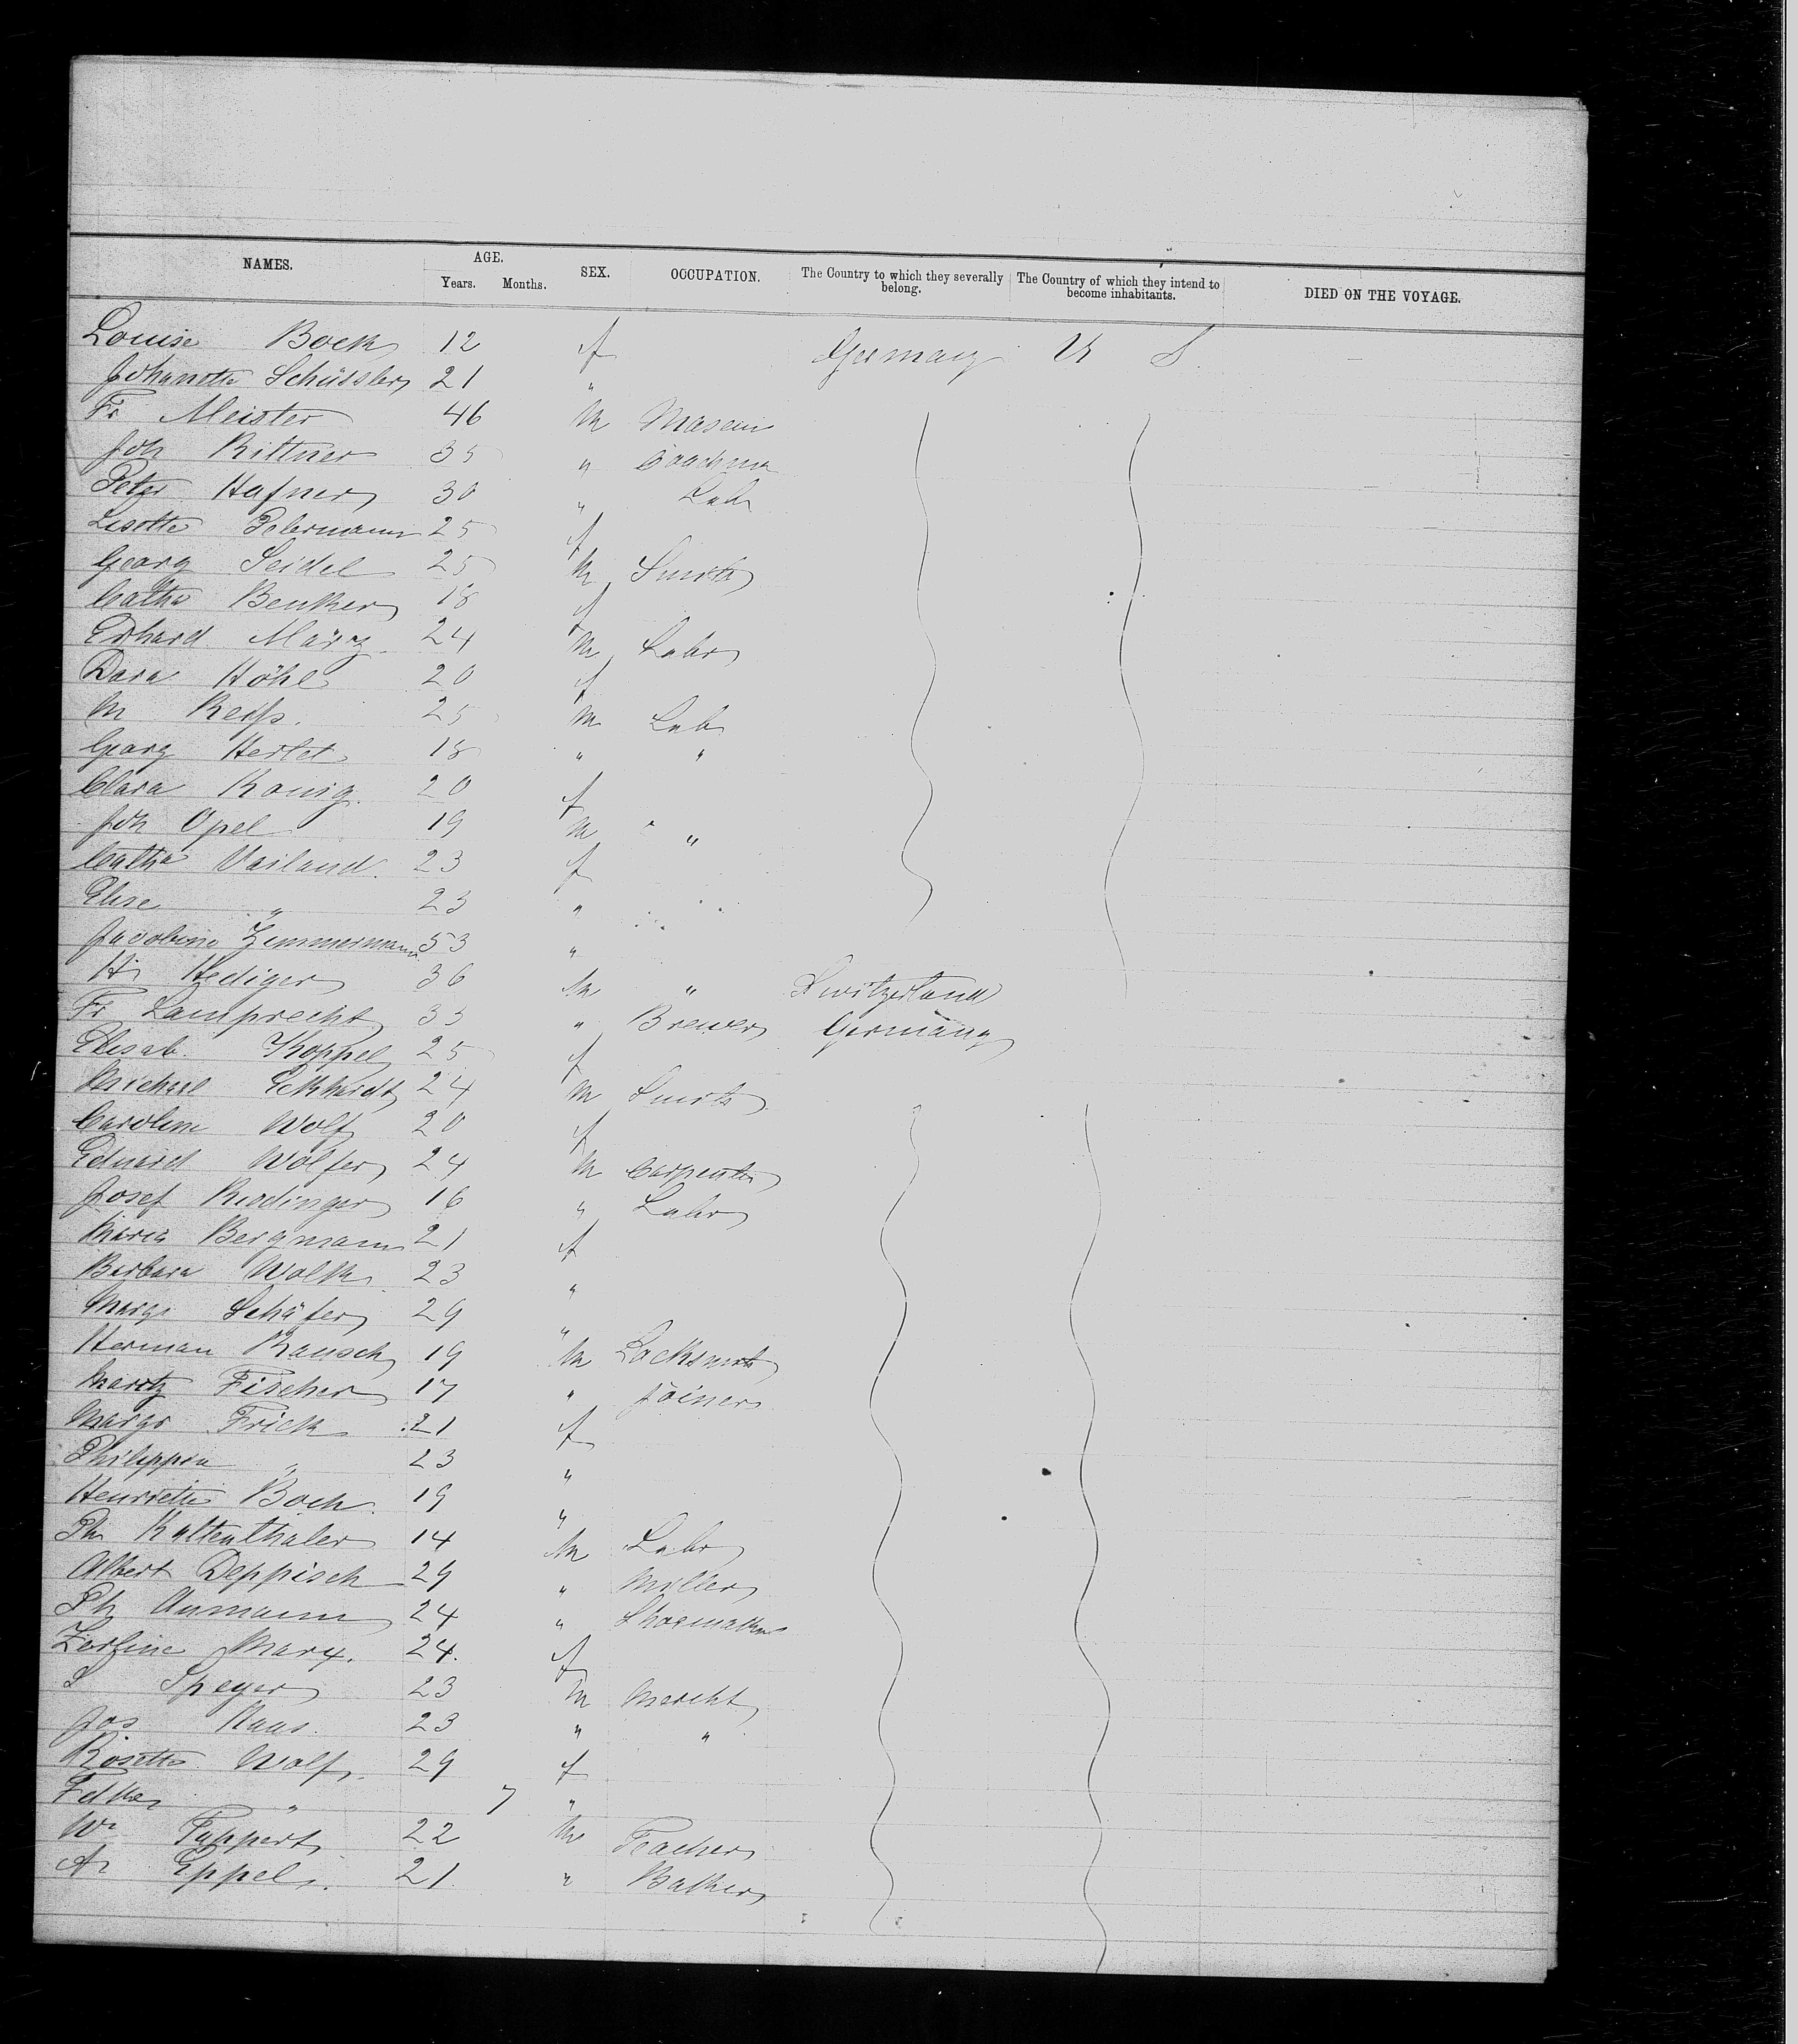 NAMES. AGE. Years. Months. SEX. OCCUPATION. The Country to which they severally belong. The Country of which they intend to become inhabitants. DIED ON THE VOYAGE.
Louise Bock 12 f Germany U S.
Johanette Schüssler 21 "
Fr Meister 46 m Mason
Joh Rittner 35 " Coachma
Peter Hafner 30 " Lab
Lisette Petermann 25 f
Georg Seidel 25 m Smith
Catha Benker 18 f
Erhard März 24 m Labr
Dora Höhl 20 f
M Reiß. 25 m Lab
Georg Hertel 18 " "
Clara Konig. 20 f
Joh Opel 19 m "
Catha Vailand. 23 f
Elise " 23 "
Jacobine Zimmermann 53 "
Hr Hediger 36 m " Switzerland
Fr Lamprecht 33 " Brewer Germany
Elisab. Koppel 25 f
Michael Eckhardt 24 m Smith
Caroline Wolf 20 f
Eduard Wolfer 24 m Carpenter
Josef Riedinger 16 " Labr
Maria Bergmann 21 f
Barbara Wolk 23 "
Margr Schäfer 29 "
Herman Rausch 19 m Locksmith
Moritz Fischer 17 " Joiner
Margr Frick 21 f
Philippa " 23 "
Henriette Boch. 19 "
Ph Kaltenthaler 14 m Labr
Albert Deppisch 29 " Miller
Ph Aumann 24 " Shoemaker
Zerline Marx. 24. f
L Speyer 23 m Mercht
Jos Haas. 23 " "
Rosette Wolf. 29 f
" 7 "
Wm Puppert 22 m Teacher
Ar Eppel. 21. " Baker